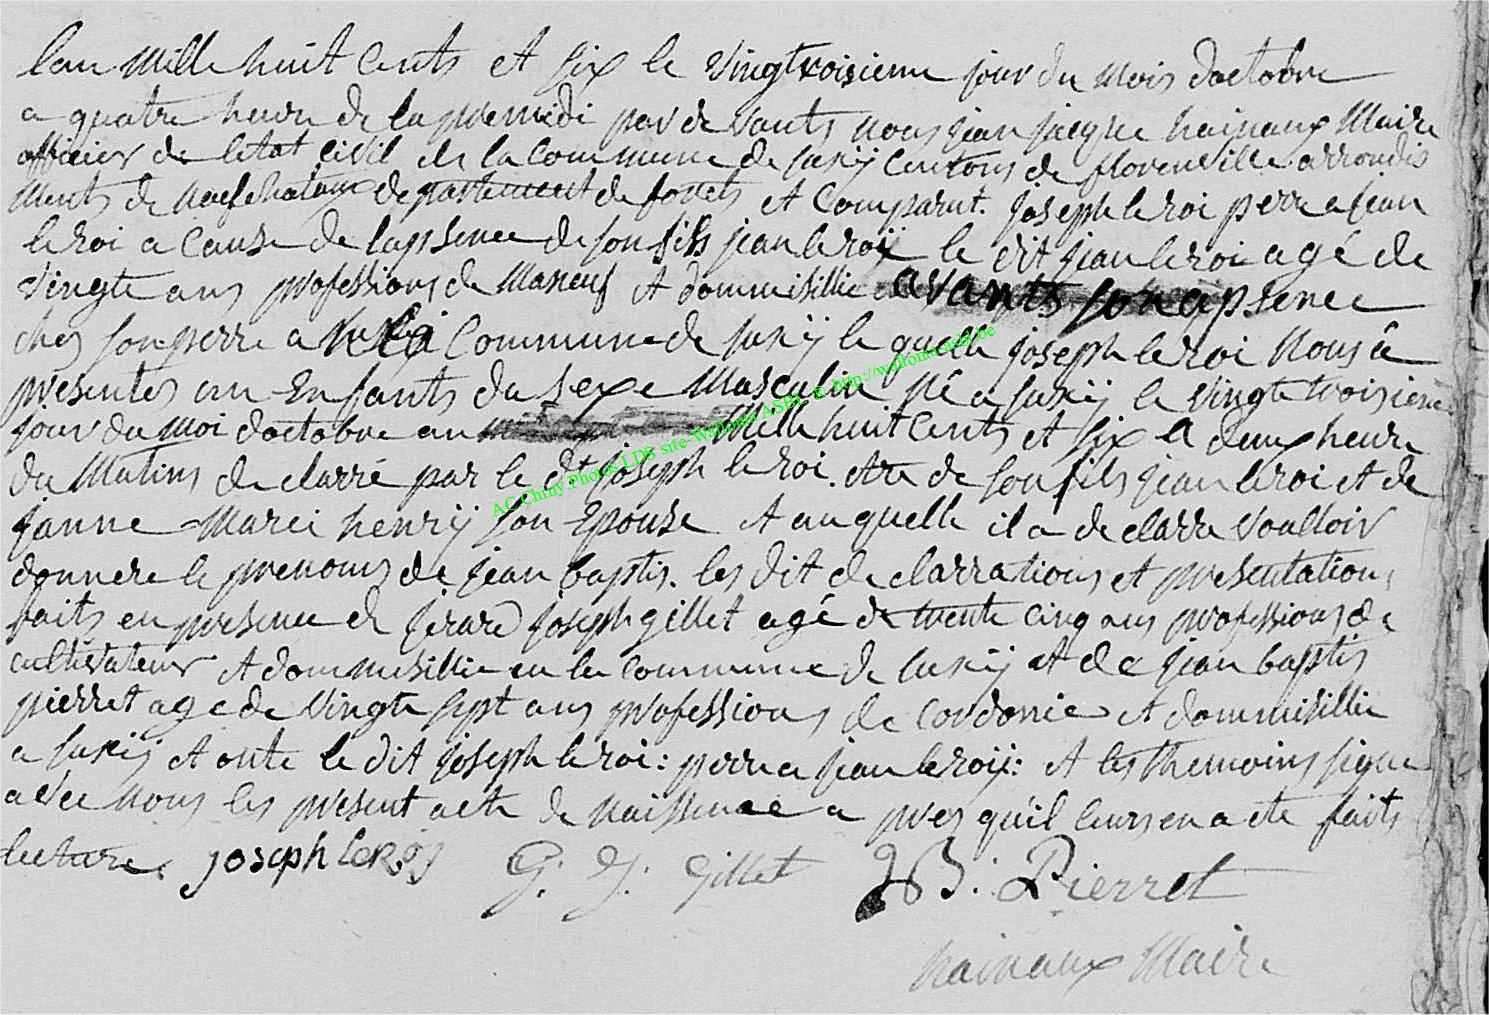 lan mille huit Cents et six le vingtroisieme jour du mois doctobre
a quatre heure de la premidi par de vants nous jean jacque hainaux Maire
officier de letat civil de la Commune de suxÿ Cantons de florenville arrondis
ments de neufchataux departement de forets et Comparut. joseph le roi perre a jean
le roi a Cause de lapsence de son fils jean le roÿ le dit jean le roi agé de
vingte ans professions de et dommisillie avants son apsence
chez son perre a la Commune de suxÿ le quelle joseph le roi nous â
presentes un Enfants du sexe Masculin né a suxÿ le vingte troisieme
jour du moi doctobre an mille huit Cents et six a deux heure
du Matins de clarré par le dt joseph le roi. etre de son fils jean le roi et de
janne Marei henrÿ son Epouse et au quelle il a de clarra voulloir
donnere le prenoms de jean baptis. les dit de clarrations et presentations
faits en presence de jerard joseph gillet agé de trente cinq ans professions de
cultivateur et dommisillie en la commune de suxÿ et de jean baptis
pierret age de vingte sept ans professions de cordonie et dommisillie
a suxÿ et onte le dit joseph le roi: perre a jean le roÿ: et les themoins signe
avec nous les present acte de naissence a pres qu'il leurs en a ete faits
lecture. joseph le Roÿ G. J. Gillet JB. Pierret
hainaux Maire
AC Chiny Photos LDB site Wallonia ASBL © http://wallonia-asbl.be